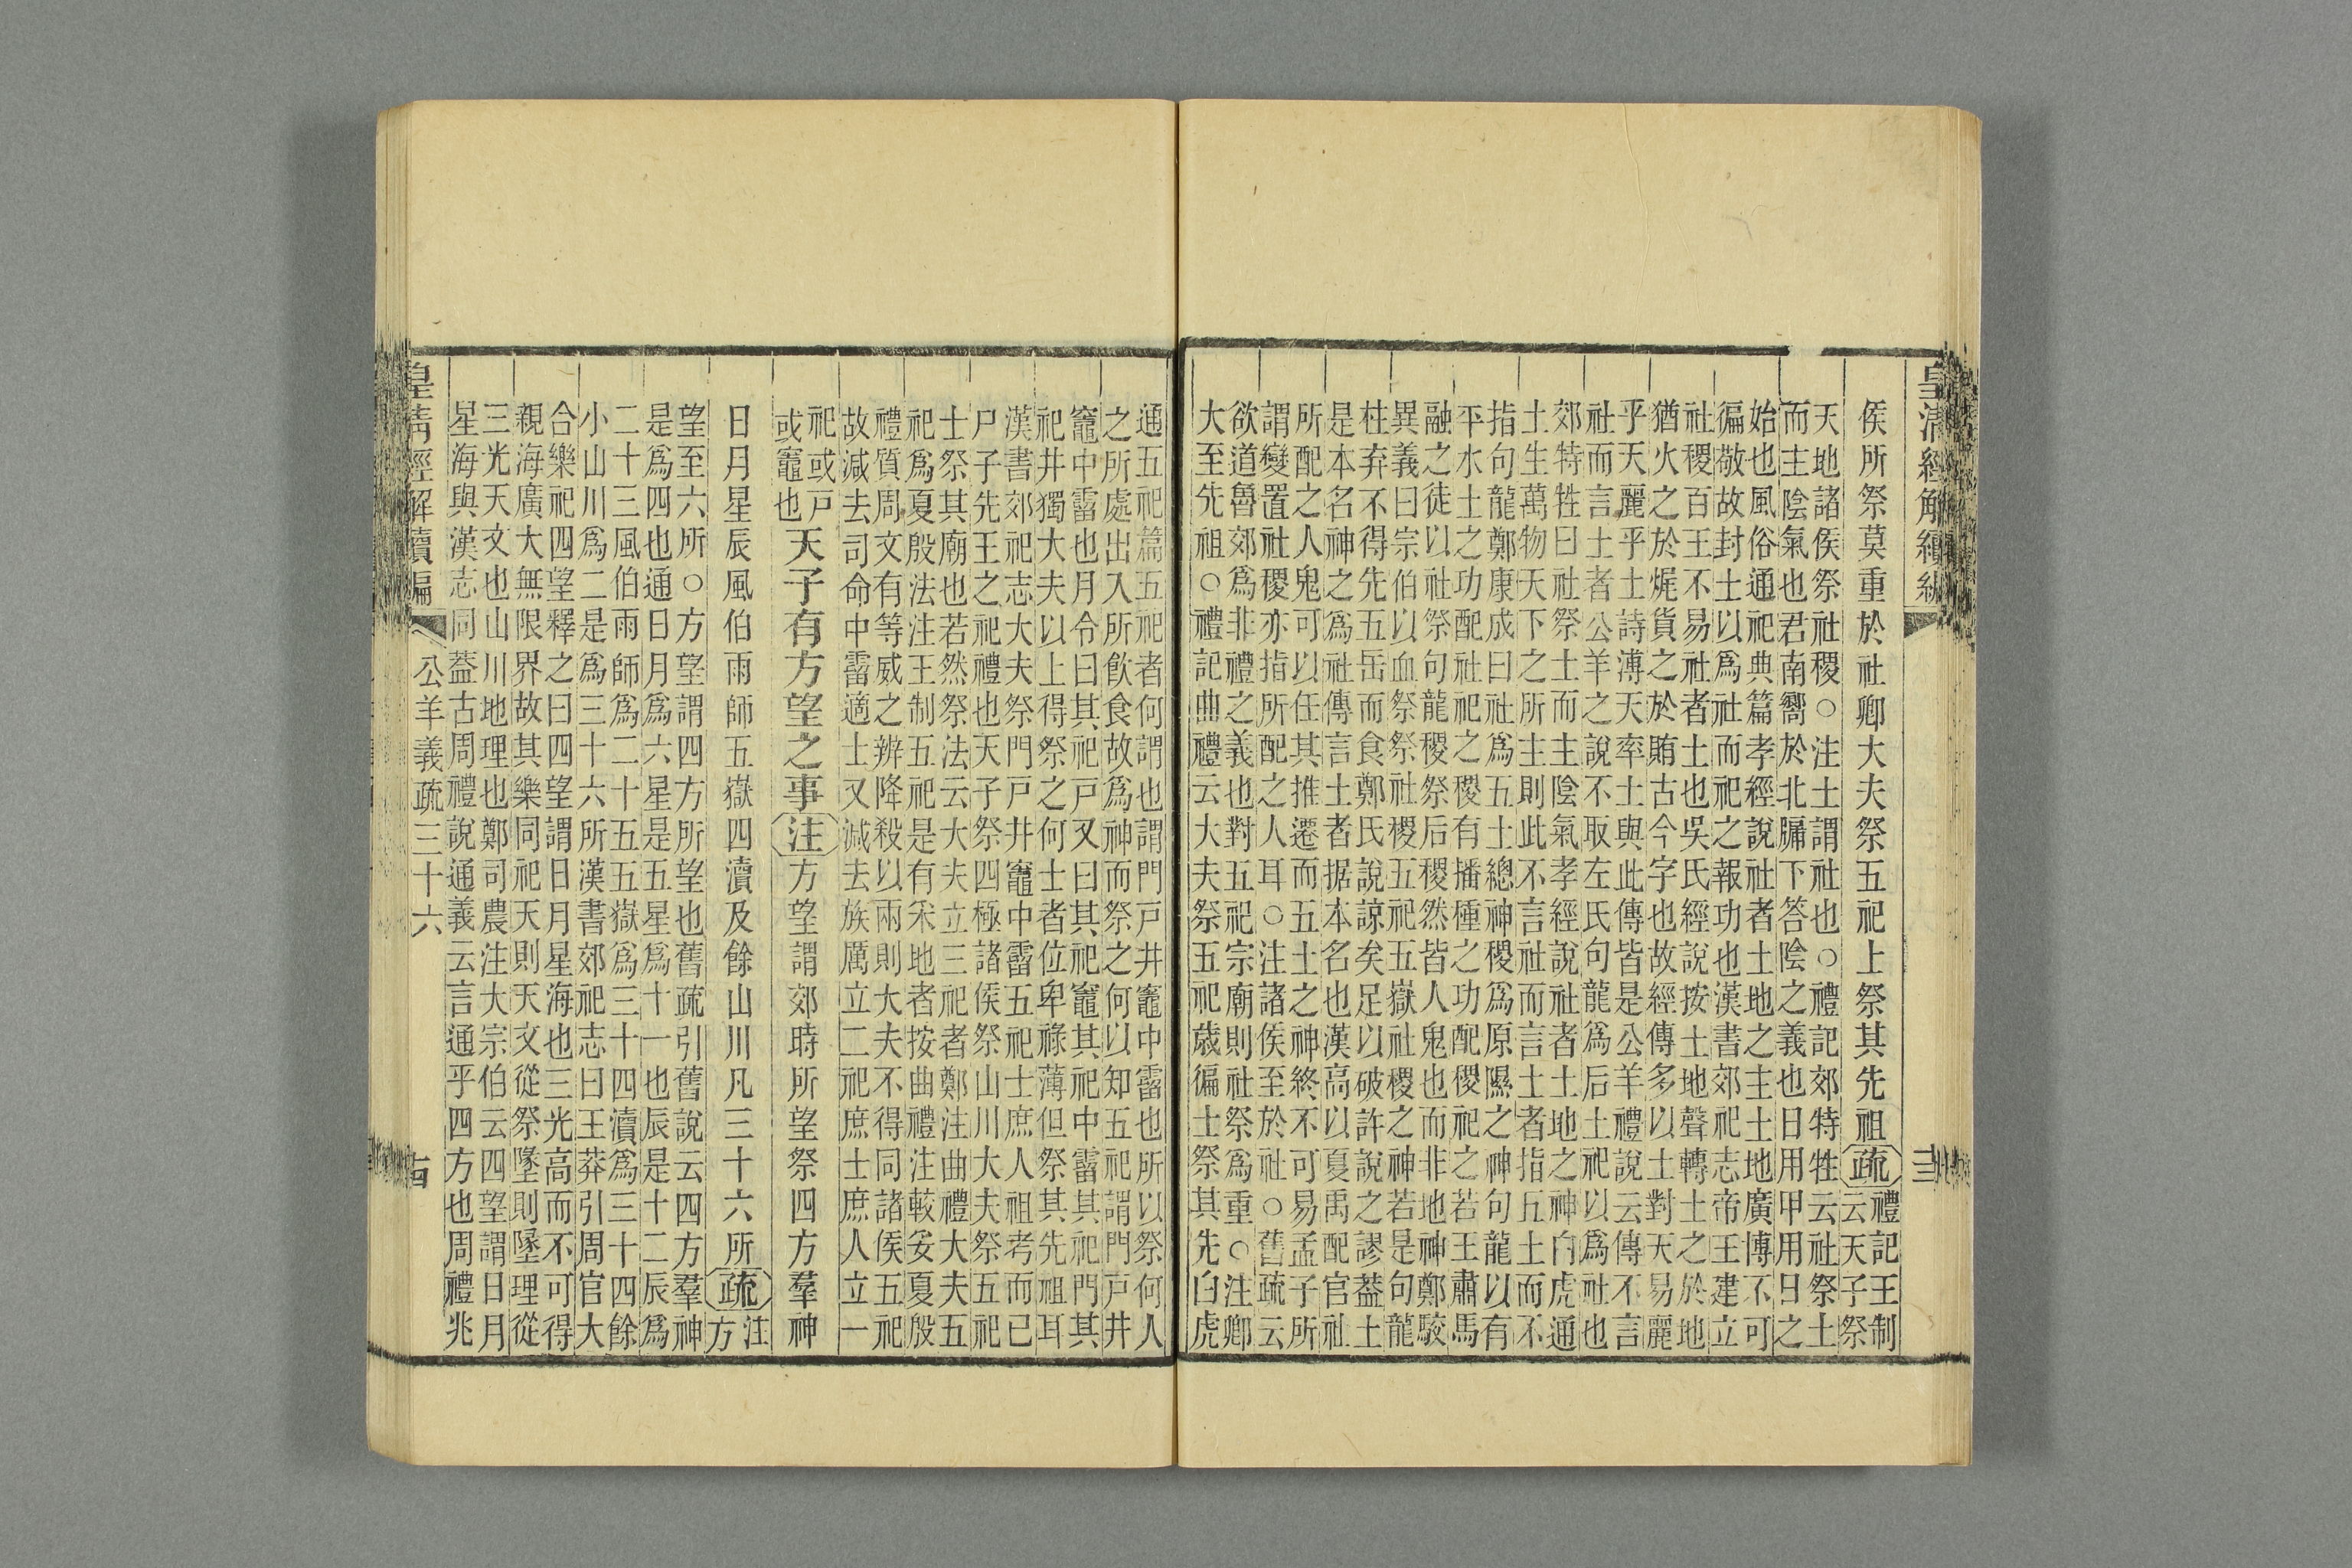 皇清經解續編
侯所祭莫重於社卿大夫祭五祀上祭其先祖疏禮記王制
云天子祭
天地諸侯祭社稷○注土謂社也○禮記郊特牲云社祭土
而主陰氣也君南嚮於北牖下答陰之義也日用甲用日之
始也風俗通祀典篇孝經說社者土地之主土地廣博不可
徧敬故封土以爲社而祀之報功也漢書郊祀志帝王建立
社稷百王不易社者土也吳氏經說按土地聲轉土之於地
猶火之於貨之於賄古今字也故經傳多以土對天易麗
乎天麗乎土詩溥天率土與此傳皆是公羊禮說云傳不言
社而言土者公羊之說不取左氏句龍爲后土祀以爲社也
郊特牲曰社祭土而主陰氣孝經說社者土地之神白虎通
土生萬物天下之所主則此不言社而言土者指五土而不
指句龍鄭康成曰社爲五土總神稷爲原隰之神句龍以有
平水土之功配社祀之稷有播種之功配稷祀之若王肅馬
融之徒以社祭句龍稷祭后稷然皆人鬼也而非地神鄭駁
異義曰宗伯以血祭祭社稷五祀五嶽社稷之神若是句龍
柱弃不得先五岳而食鄭氏說諒矣足以破許說之謬葢土
是本名神之爲社傳言土者据本名也漢高以夏禹配官社
所配之人鬼可以任其推遷而五土之神終不可易孟子所
謂變置社稷亦指所配之人耳○注諸侯至於社○舊疏云
欲道魯郊爲非禮之義也對五祀宗廟則社祭爲重○注卿
大至先祖○禮記曲禮云大夫祭五祀歲徧士祭其先白虎
通五祀篇五祀者何謂也謂門戶井竈中霤也所以祭何人
之所處出入所飮食故爲神而祭之何以知五祀謂門戶井
竈中霤也月令曰其祀戶又曰其祀竈其祀中霤其祀門其
祀井獨大夫以上得祭之何士者位卑祿薄但祭其先祖耳
漢書郊祀志大夫祭門戶井竈中霤五祀士庶人祖考而已
尸子先王之祀禮也天子祭四極諸侯祭山川大夫祭五祀
士祭其廟也若然祭法云大夫立三祀者鄭注曲禮大夫五
祀爲夏殷法注王制五祀是有采地者按曲禮注較妥夏殷
禮質周文有等威之辨降殺以兩則大夫不得同諸侯五祀
故減去司命中霤適士又減去族厲立二祀庶士庶人立一
祀或戶
或竈也天子有方望之事注方望謂郊時所望祭四方羣神
日月星辰風伯雨師五嶽四瀆及餘山川凡三十六所疏注
方
望至六所○方望謂四方所望也舊疏引舊說云四方羣神
是爲四也通日月爲六星是五星爲十一也辰是十二辰爲
二十三風伯雨師爲二十五五嶽爲三十四瀆爲三十四餘
小山川爲二是爲三十六所漢書郊祀志曰王莽引周官大
合樂祀四望釋之曰四望謂日月星海也三光高而不可得
親海廣大無限界故其樂同祀天則天文從祭墬則墬理從
三光天文也山川地理也鄭司農注大宗伯云四望謂日月
星海與漢志同葢古周禮說通義云言通乎四方也周禮兆
皇淸經解續編
公羊義疏三十六